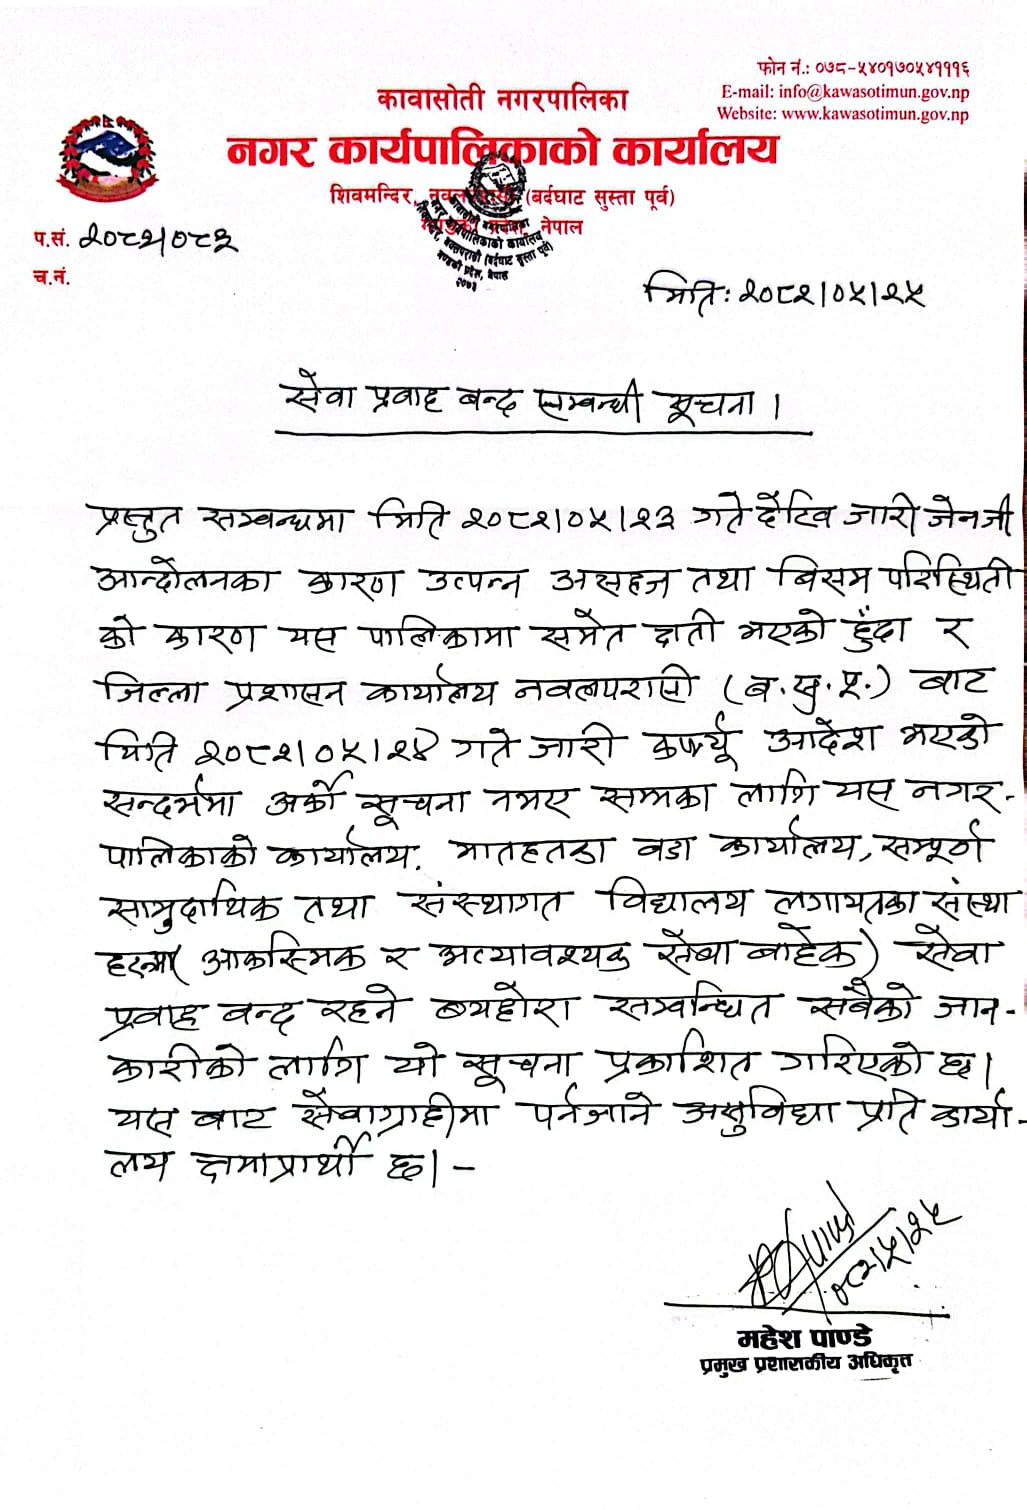 फोन नं.: ०७८-५४०१७०५४१११६
E-mail: info@kawasotimun.gov.np
Website: www.kawasotimun.gov.np
कावासोती नगरपालिका
नगर कार्यपालिकाको कार्यालय
शिवमन्दिर, (बर्दघाट सुस्ता पूर्व)
नेपाल
कावासोती नगरपालिका
नगर कार्यपालिकाको कार्यालय
शिवमन्दिर, नवलपरासी (बर्दघाट सुस्ता पूर्व)
गण्डकी प्रदेश, नेपाल
२०७३
प.सं. २०८२/०८३
च.नं.
मिति: २०८२/०५/२५
सेवा प्रवाह बन्द सम्बन्धी सूचना ।
प्रस्तुत सम्बन्धमा मिति २०८२/०५/२३ गते देखि जारी जेनजी
आन्दोलनका कारण उत्पन्न असहज तथा बिसम परिस्थिती
को कारण यस पालिकामा समेत क्षती भएको हुँदा र
जिल्ला प्रशासन कार्यालय नवलपरासी (ब.सु.पू.) बाट
मिति २०८२/०५/२४ गते जारी कर्फ्यू आदेश भएको
सन्दर्भमा अर्को सूचना नभए सम्मका लागि यस नगर-
पालिकाको कार्यालय, मातहतका वडा कार्यालय, सम्पूर्ण
सामुदायिक तथा संस्थागत विद्यालय लगायतका संस्था
हरुमा (आकस्मिक र अत्यावश्यक सेबा बाहेक) सेवा
प्रवाह बन्द रहने ब्यहोरा सम्बन्धित सबैको जान-
कारीको लागि यो सूचना प्रकाशित गरिएको छ।
यस बाट सेवाग्राहीमा पर्नजाने असुविधा प्रति कार्या-
लय क्षमाप्रार्थी छ। -
२०८२/५/२५
महेश पाण्डे
प्रमुख प्रशासकीय अधिकृत